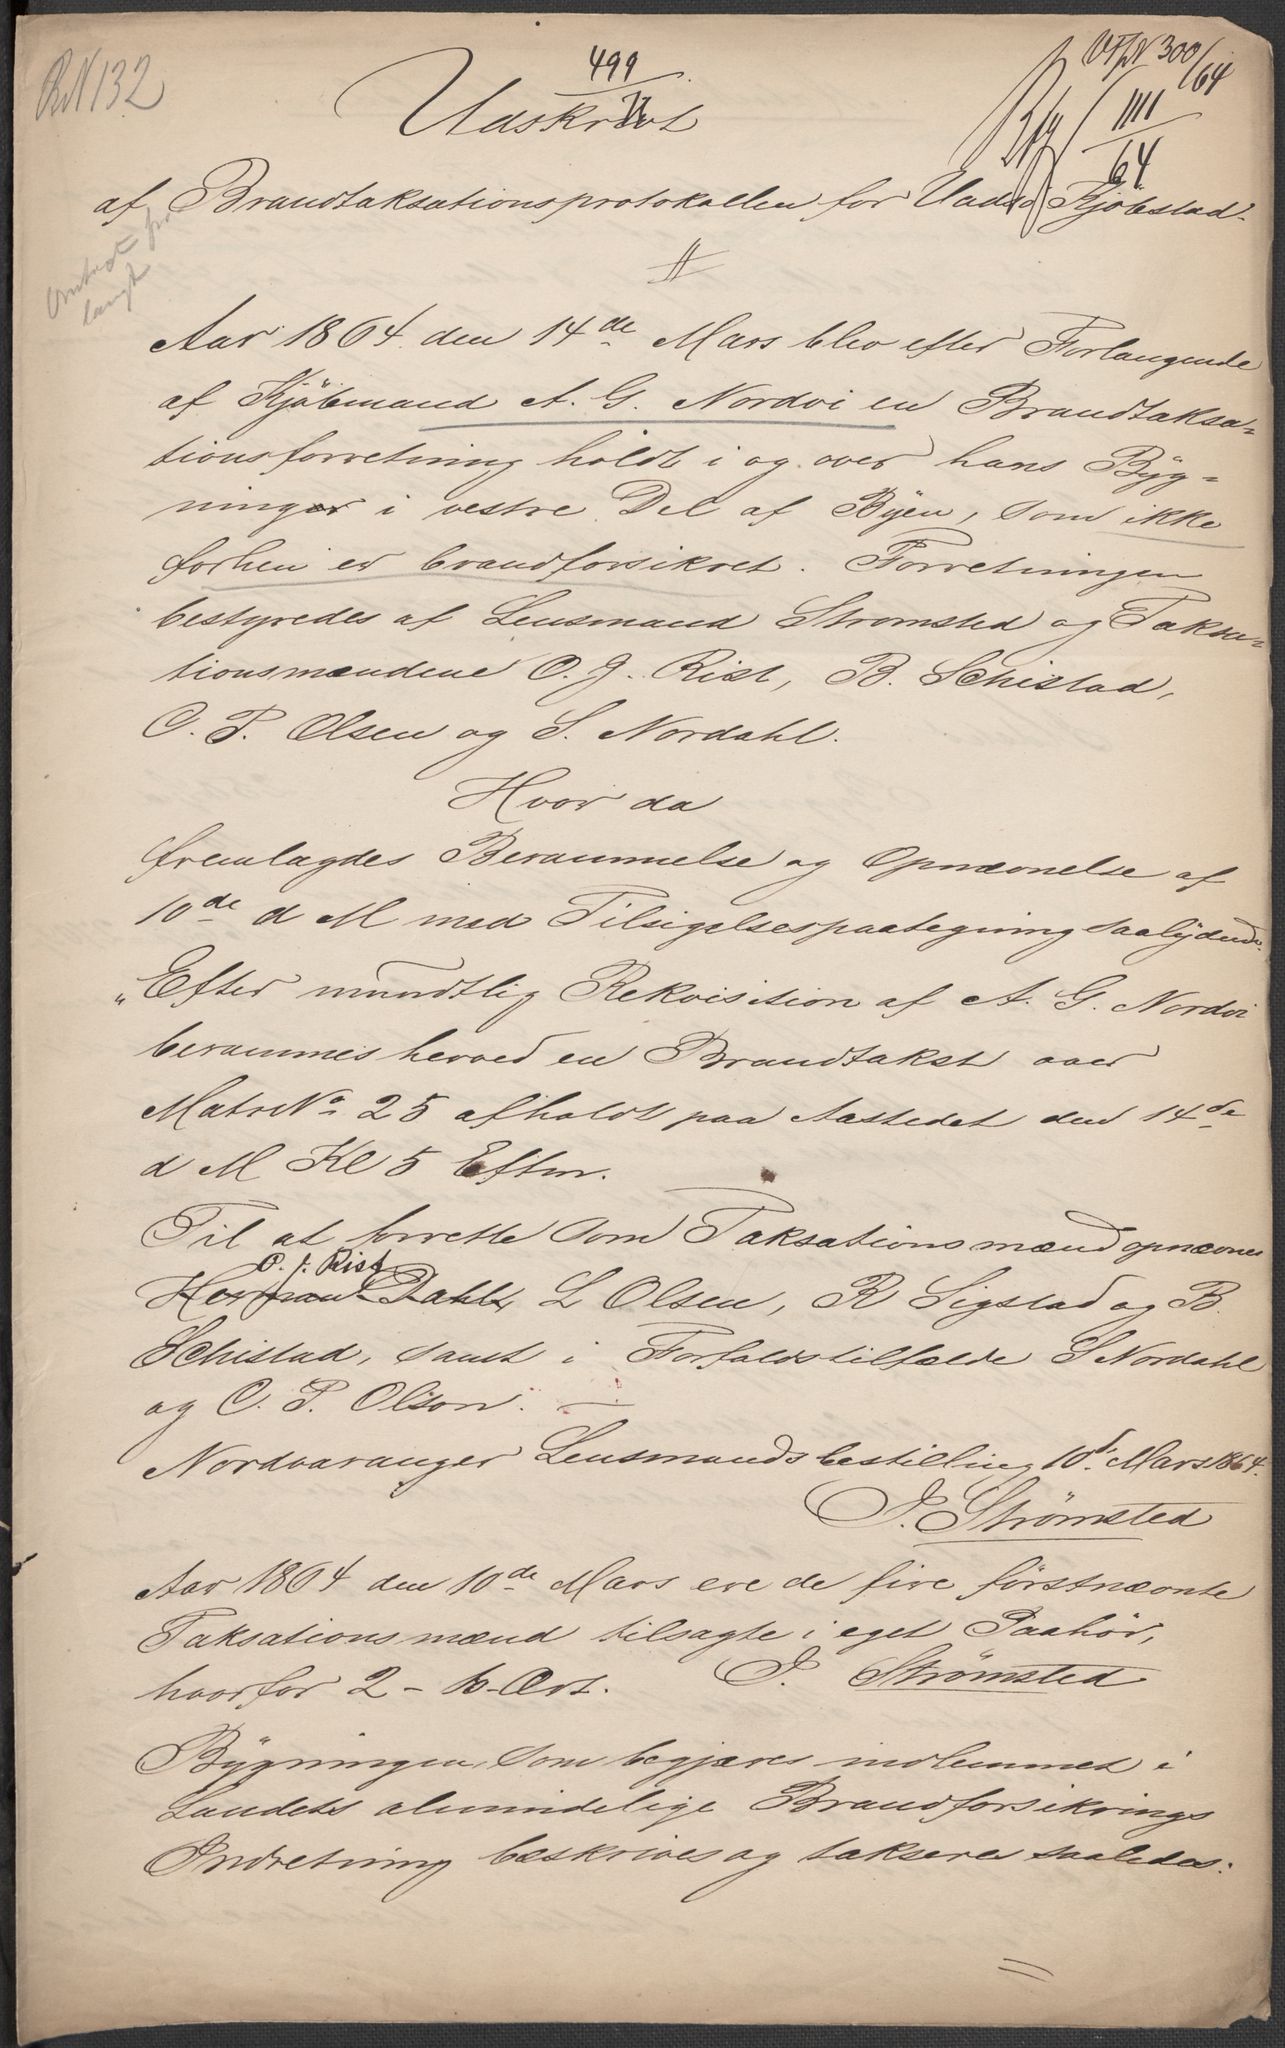 RN 132
499
77
Udskrivt
VFN 300/64
1111
64
af Brandtaksationsprotokollen for Vadsö Kjöbstad.
Aar 1864 den 14de Mars blev efter Forlangende
af Kjöbmand A. G. Nordvi en Brandtaksa=
tionsforretning holdt i og over hans Byg=
ninger i vestre Del af Byen, som ikke
forhen er brandforsikret. Forretningen
bestyredes af Lensmand Strömsted og Taksa=
tionsmændene O. J. Rist, B. Schistad,
C. P. Olsen og S. Nordahl.
Hvor da
fremlagdes Berammelse og Opnævnelse af
10de d M med Tilsigelsespaategning saalydende:
"Efter mundtlig Rekvisition af A. G. Nordvi
berammes herved en Brandtakst over
Matr No 25 afholdt paa Aastedet den 14de
d M Kl 5 Efterm.
Til at forrette som Taksationsmænd opnævnes
O. J. Rist
Herman Dahl, L Olsen, R Sigstad og B.
Schistad, samt i Forfaldstilfælde S Nordahl
og C. P. Olson. —
Nordvaranger Lensmandsbestilling 10d. Mars 1864.
J. Strömsted
Aar 1864 den 10de Mars ere de fire förstnævnte
Taksationsmænd tilsagte i eget Paahör,
hvorfor 2 - 16 - Ort. J. Strömsted
Bygningen, som begjæres indlemmet i
Landets almindelige Brandforsikrings
Indretning beskrives og takseres saaledes: